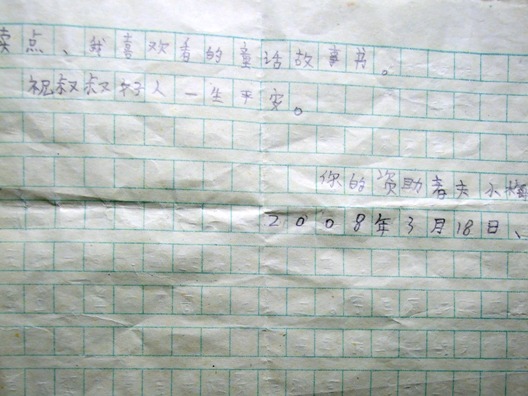 卖点、我喜欢看的童话故事书。
祝叔叔好人一生平安。
你的资助者夫小梅
2008年3月18日、